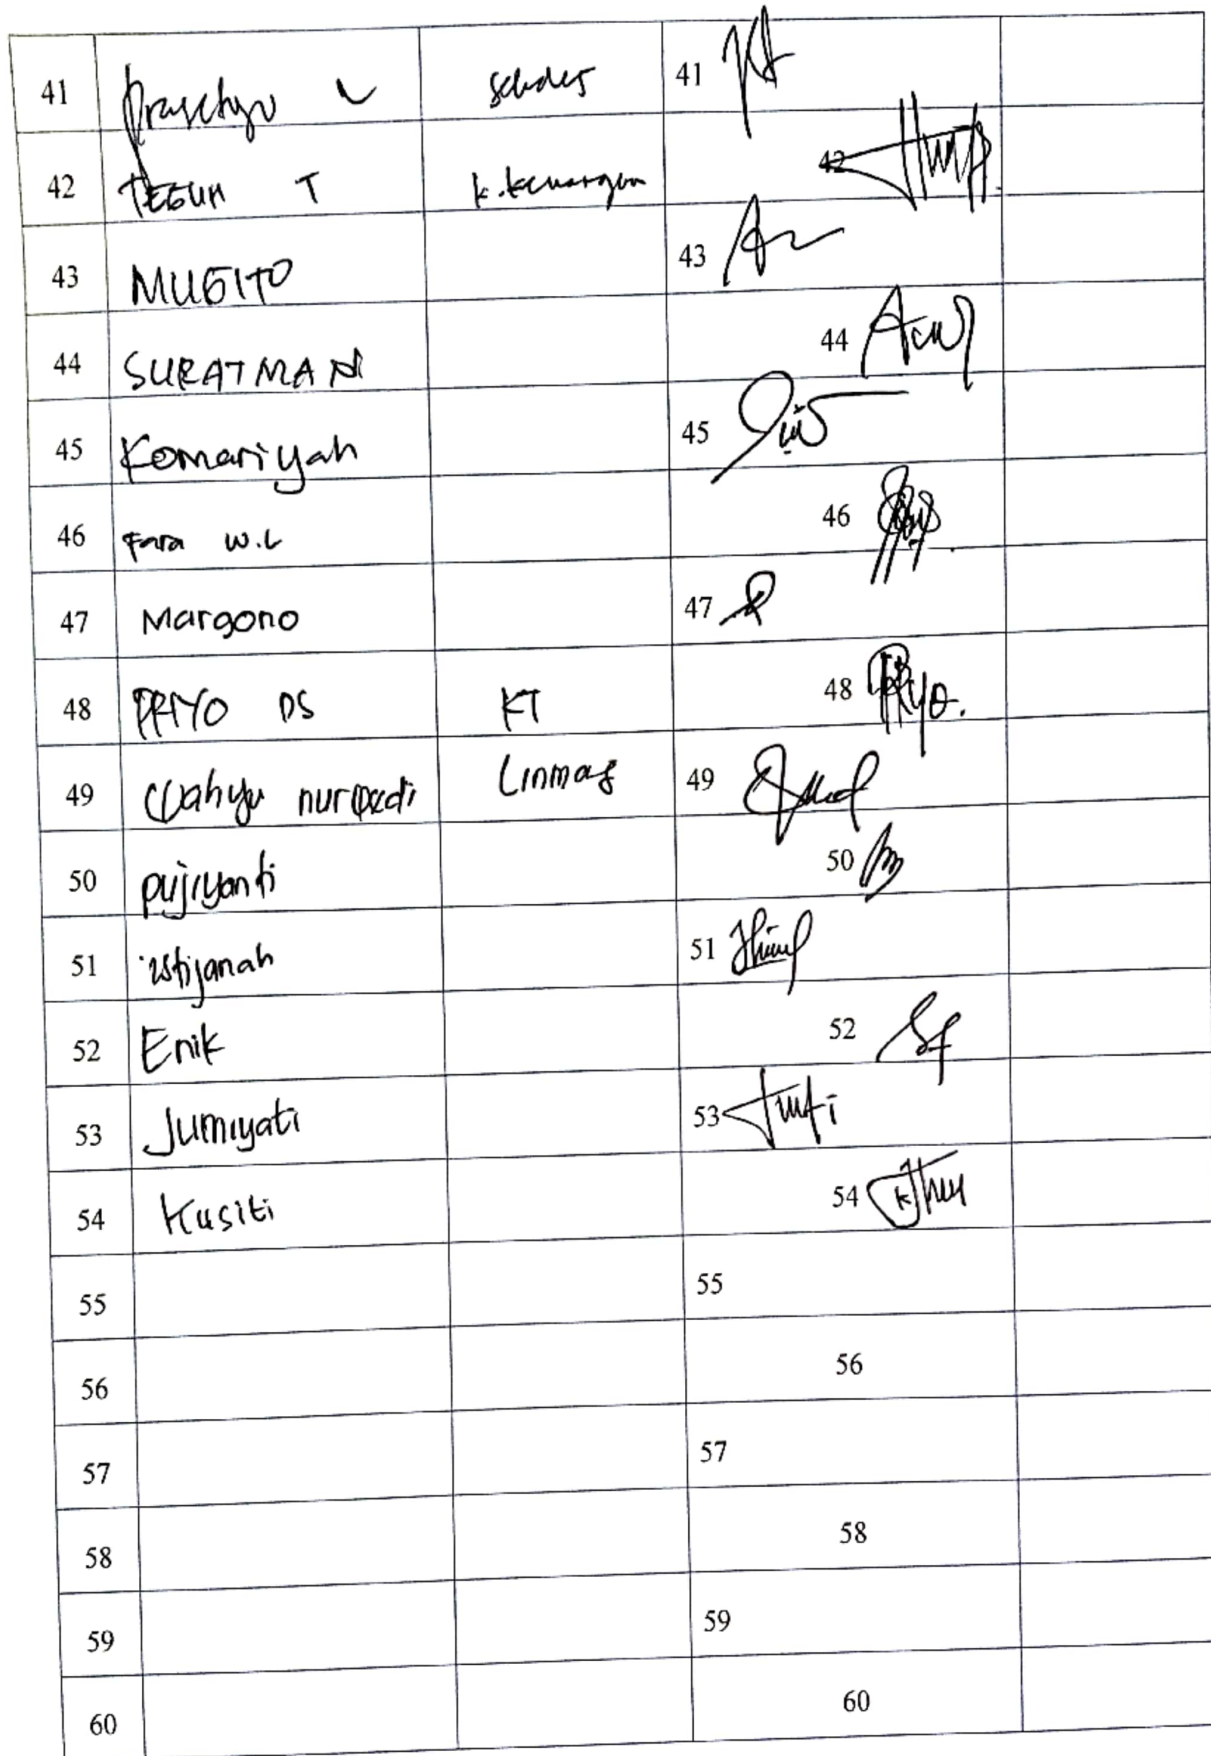 41 Prasetyo L sekdes 41
42 TEGUH T k. keuangan 42
43 MUGITO 43
44 SURATMAN 44
45 Komariyah 45
46 Fara W.L 46
47 Margono 47
48 PRIYO DS KT 48
49 Wahyu Linmas 49
50 pujiyanti 50
51 istijanah 51
52 Enik 52
53 Jumiyati 53
54 Kusiti 54
55 55
56 56
57 57
58 58
59 59
60 60